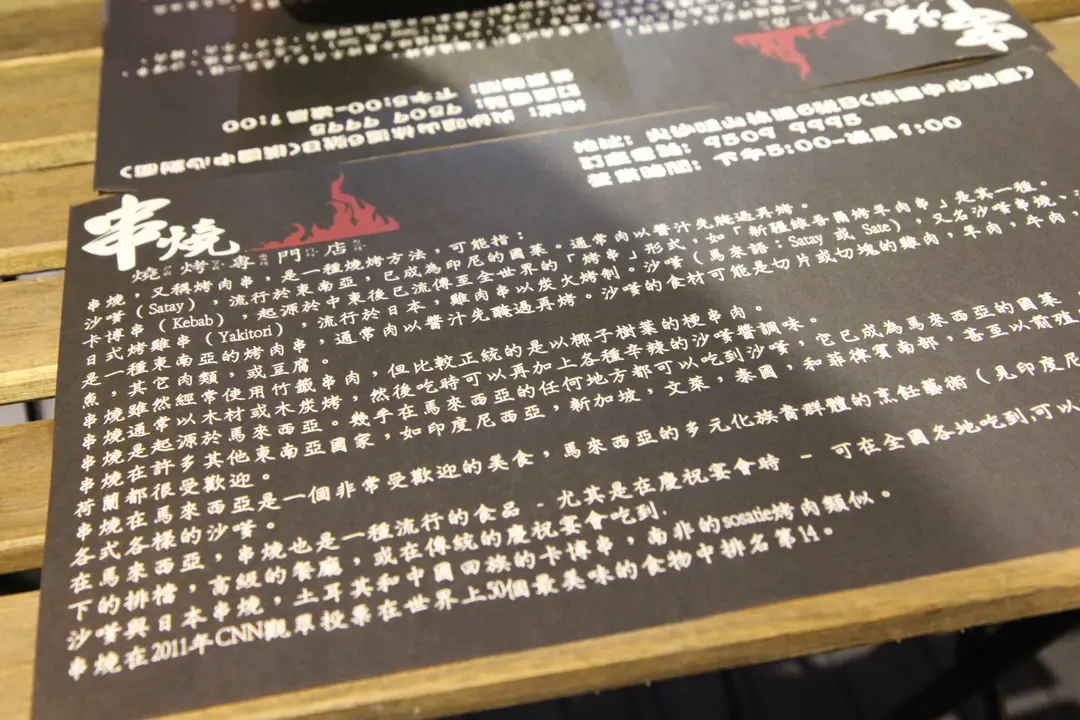 串燒
燒烤專門店
地址: 尖沙咀山林道6號B(祺園中心對面)
訂座電話: 9509 9995
營業時間: 下午5:00-凌晨1:00
串燒，又稱烤肉串，是一種燒烤方法，可能指：
沙嗲（Satay），流行於東南亞，已成為印尼的國菜。通常肉以醬汁先醃過再烤。
卡博串（Kebab），起源於中東後已流傳至全世界的「烤串」形式，如「新疆維吾爾烤羊肉串」是其一種。
日式烤雞串（Yakitori），流行於日本，雞肉串以炭火烤制。沙嗲（馬來語：Satay 或 Sate），又名沙嗲串燒、
是一種東南亞的烤肉串，通常肉以醬汁先醃過再烤。沙嗲的食材可能是切片或切塊的雞肉，羊肉，牛肉，
魚，其它肉類，或豆腐。
串燒雖然經常使用竹籤串肉，但比較正統的是以椰子樹葉的梗串肉。
串燒通常以木材或木炭烤，然後吃時可以再加上各種辛辣的沙嗲醬調味。
串燒是起源於馬來西亞。幾乎在馬來西亞的任何地方都可以吃到沙嗲，它已成為馬來西亞的國菜
串燒在許多其他東南亞國家，如印度尼西亞，新加坡，文萊，泰國，和菲律賓南部，甚至以前殖
荷蘭都很受歡迎。
串燒在馬來西亞是一個非常受歡迎的美食，馬來西亞的多元化族裔群體的烹飪藝術（見印度尼
各式各樣的沙嗲。
在馬來西亞，串燒也是一種流行的食品 - 尤其是在慶祝宴會時 - 可在全國各地吃到,可以
下的排檔，高級的餐廳，或在傳統的慶祝宴會吃到.
沙嗲與日本串燒，土耳其和中國回族的卡博串，南非的sosatie烤肉類似。
串燒在2011年CNN觀眾投票在世界上50個最美味的食物中排名第14。